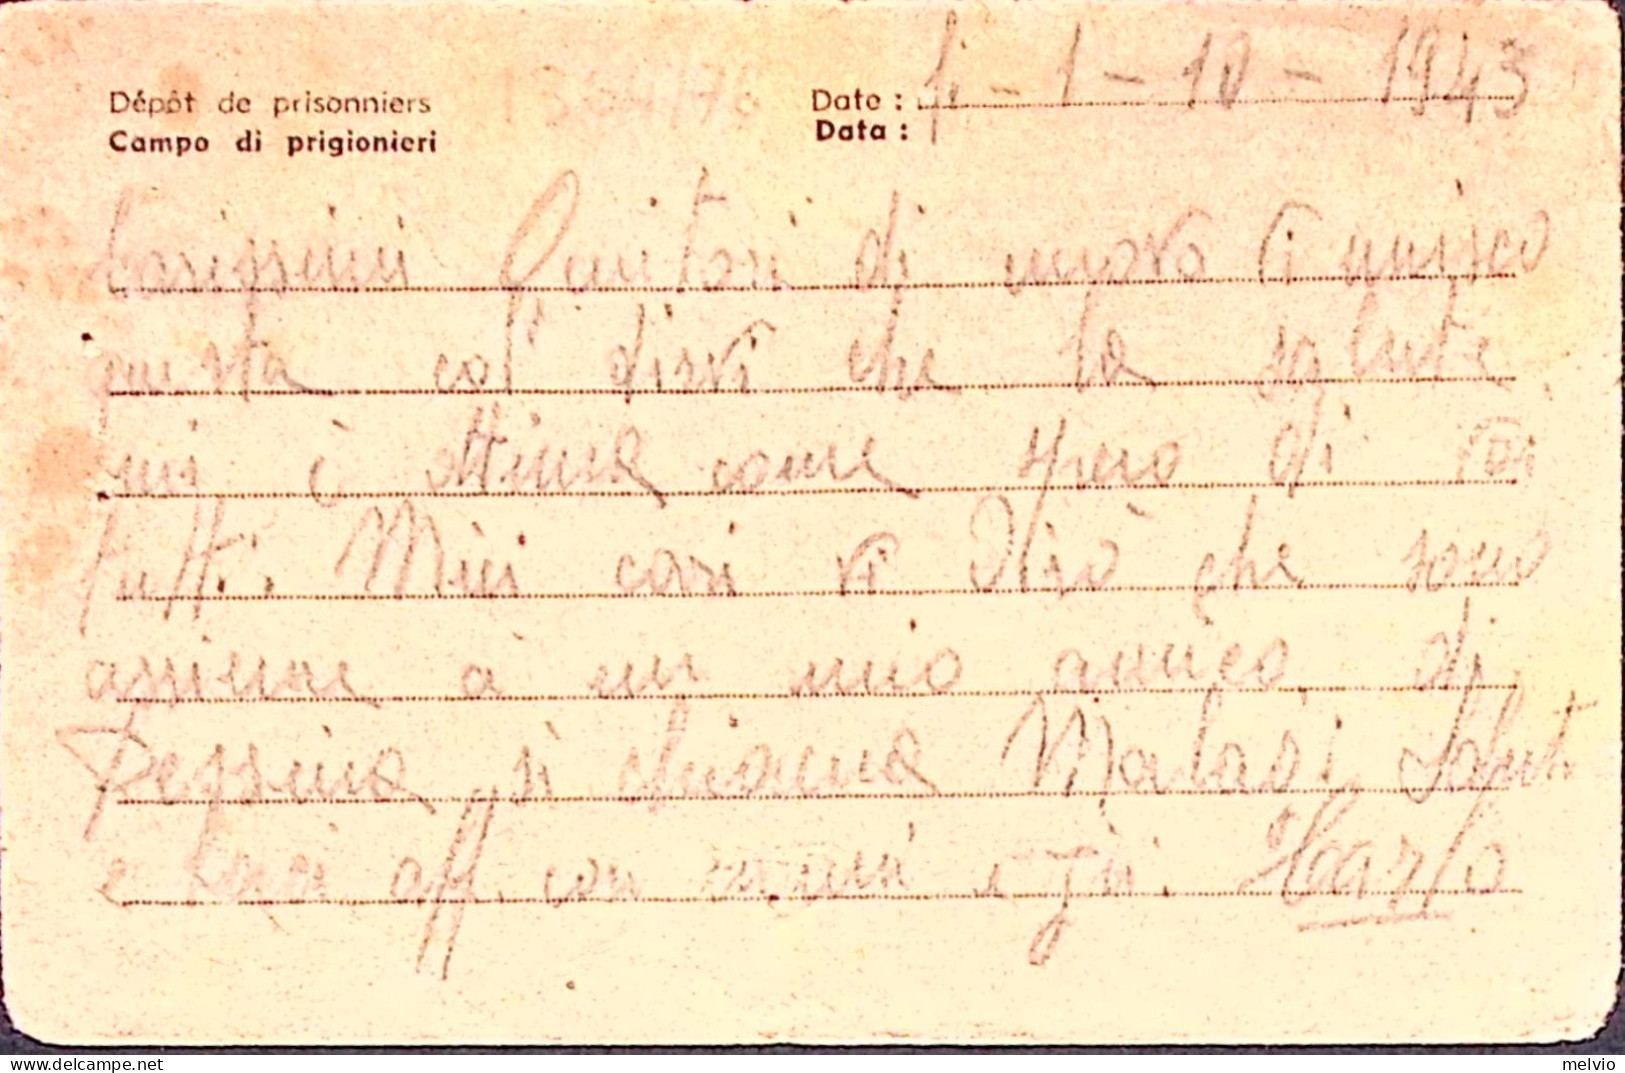 Dépôt de prisonniers
Date : li - 1 - 10 - 1943
Campo di prigionieri
Data :
Carissimi Genitori di nuovo vi unisco
questa col dirvi che la salute
mi è ottima come spero di voi
tutti. Miei cari vi dirò che sono
assieme a un mio amico di
Pessina si chiama Malagi Salut
e baci aff. con
Carlo
www.delcampe.net
melvio